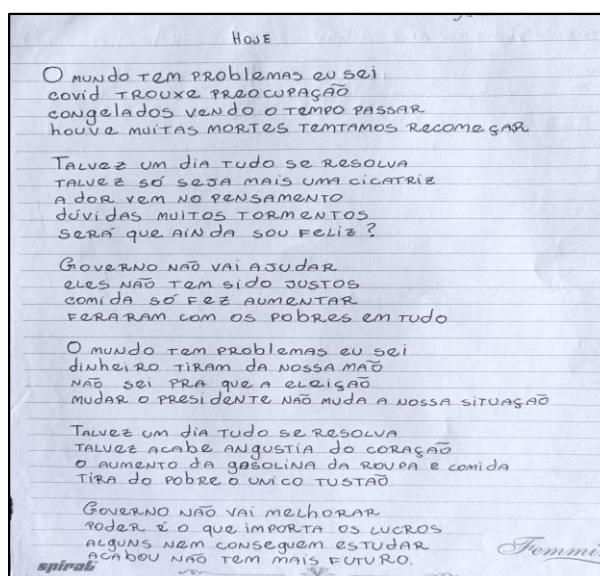 HOJE
O MUNDO TEM PROBLEMAS EU SEI
COVID TROUXE PREOCUPAÇÃO
CONGELADOS VENDO O TEMPO PASSAR
HOUVE MUITAS MORTES TEMTAMOS RECOMEÇAR
TALVEZ UM DIA TUDO SE RESOLVA
TALVEZ SÓ SEJA MAIS UMA CICATRIZ
A DOR VEM NO PENSAMENTO
DÚVIDAS MUITOS TORMENTOS
SERÁ QUE AINDA SOU FELIZ?
GOVERNO NÃO VAI AJUDAR
ELES NÃO TEM SIDO JUSTOS
COMIDA SÓ FEZ AUMENTAR
FERARAM COM OS POBRES EM TUDO
O MUNDO TEM PROBLEMAS EU SEI
DINHEIRO TIRAM DA NOSSA MÃO
NÃO SEI PRA QUE A ELEIÇÃO
MUDAR O PRESIDENTE NÃO MUDA A NOSSA SITUAÇÃO
TALVEZ UM DIA TUDO SE RESOLVA
TALVEZ ACABE ANGUSTIA DO CORAÇÃO
O AUMENTO DA GASOLINA DA ROUPA E COMIDA
TIRA DO POBRE O UNICO TUSTÃO
GOVERNO NÃO VAI MELHORAR
PODER É O QUE IMPORTA OS LUCROS
ALGUNS NEM CONSEGUEM ESTUDAR
ACABOU NÃO TEM MAIS FUTURO.
spiral